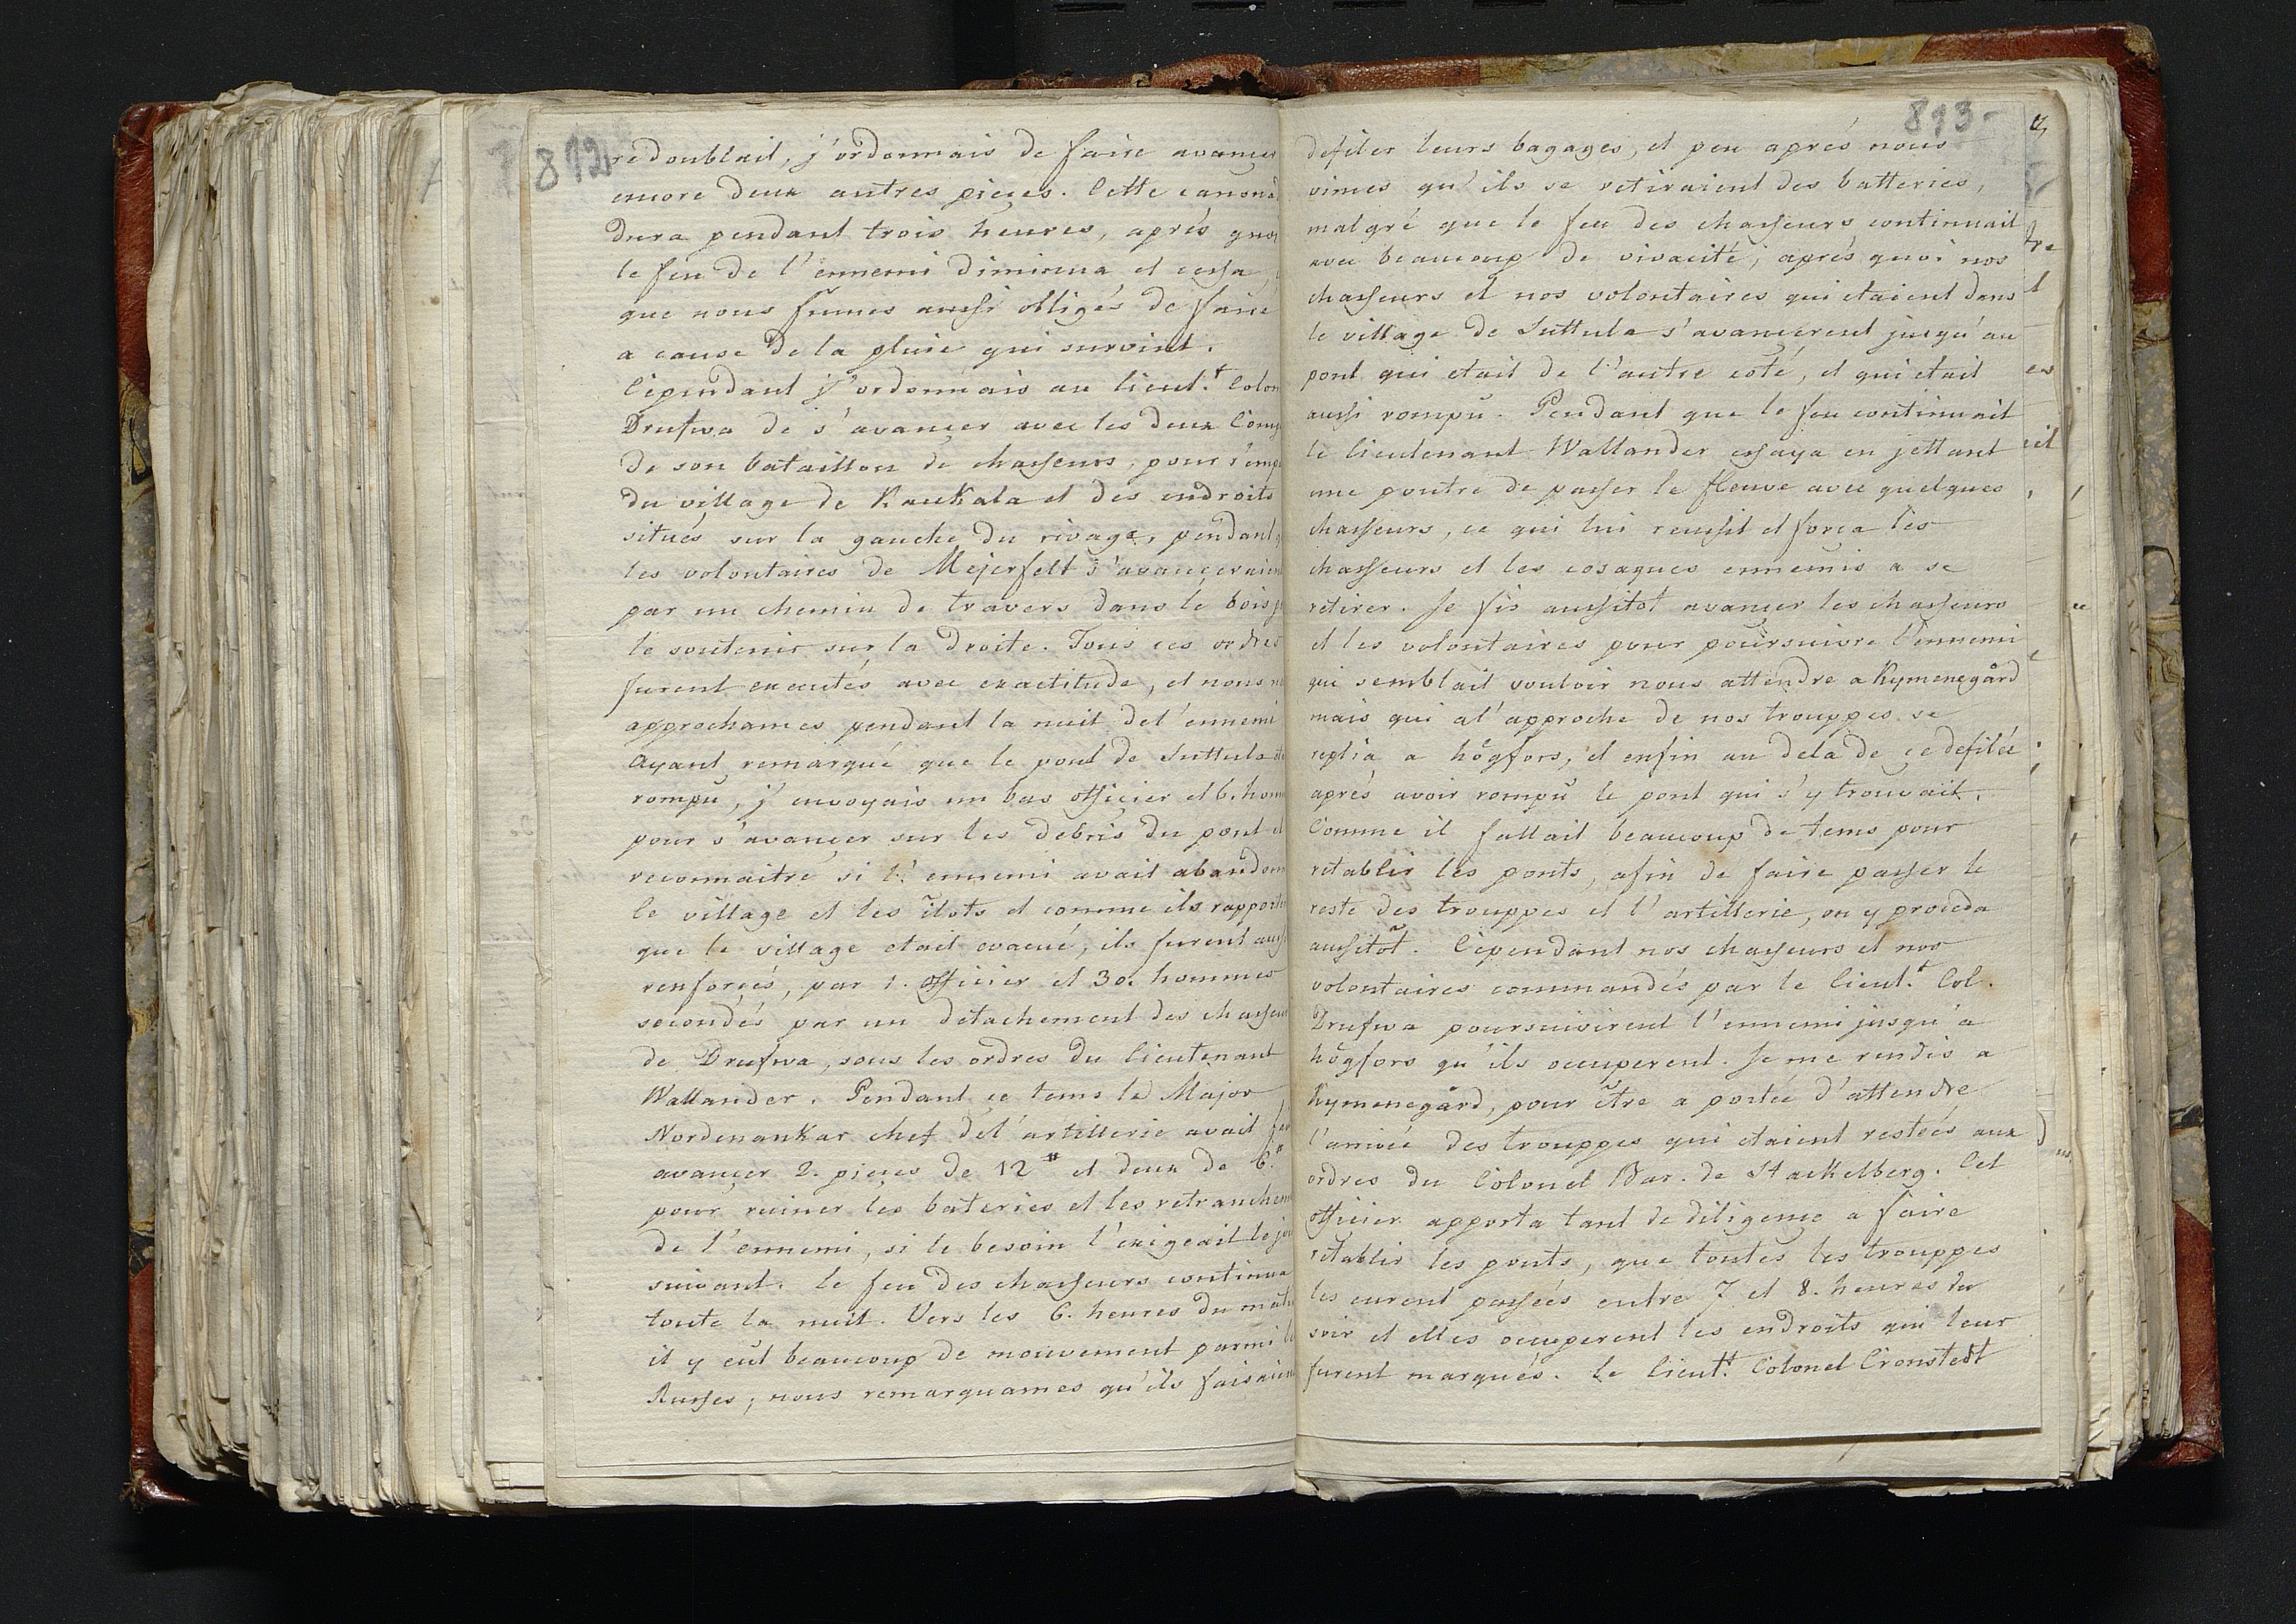 812
redoublait, j'ordonnais de faire avancer
encore deux autres pieçes. Cette canona
dura pendant trois heures, aprés quoi
le feu de l'ennemi diminua et cessa,
que nous fumes aussi obligés de faire
a cause de la pluie qui survint.
Cependant j'ordonnais au lieut.t Colon
Drufwa de s'avançer avec les deux Comp
de son bataillon de chasseurs, pour s'emp
du village de Kaukala et des endroits
situés sur la gauche du rivage, pendant q
les volontaires de Mejerfelt s'avançeraien
par un chemin de travers dans le bois p
le soutenir sur la droite. Tous ces ordres
furent executés avec exactitude, et nous n
approchames pendant la nuit de l'ennemi
Ayant remarqué que le pont de Suttula et
rompu, j'envoyais un bas officier et 6. hom
pour s'avançer sur les debris du pont et
reconnaitre si l'ennemi avait abandonn
le village et les ilots et comme ils rapporte
que le village etait evacué, ils furent auss
renforçés, par 1. officier et 30. hommes
secondés par un detachement des chasseu
de Drufwa, sous les ordres du lieutenant
Wallander. Pendant ce tems le Major
Nordenankar chef de l'artillerie avait fai
avançer 2. pieçes de 12 # et deux de 6. #
pour ruiner les bateries et les retranchem
de l'ennemi, si le besoin l'exigeait le jou
suivant. le feu des chasseurs continua
toute la nuit. Vers les 6. heures du mati
il y eût beaucoup de mouvement parmi le
Russes; nous remarquames qu'ils faisaien
813
defiler leurs bagages, et peu aprés nous
vimes qu'ils se retiraient des batteries,
malgré que le feu des chasseurs continuait
avec beaucoup de vivacité; aprés quoi nos
chasseurs et nos volontaires qui etaient dans
le village de Suttula s'avançerent jusqu'au
pont qui etait de l'autre coté, et qui etait
aussi rompû. Pendant que le feu continuait
le lieutenant Wallander essaya en jettant
une poutre de passer le fleuve avec quelques
chasseurs, ce qui lui reussit et força les
chasseurs et les cosaques ennemis a se
retirer. Je fis aussitot avançer les chasseurs
et les volontaires pour poursuivre l'ennemi
qui semblait vouloir nous attendre a Kymenegård
mais qui a l'approche de nos trouppes se
replia a högfors, et enfin au dela de ce defilée
aprés avoir rompû le pont qui s'y trouvait.
Comme il fallait beaucoup de tems pour
retablir les ponts, afin de faire passer le
reste des trouppes et l'artillerie, on y proceda
aussitôt. Cependant nos chasseurs et nos
volontaires commandés par le lieut.t Col.
Drufwa poursuivirent l'ennemi jusqu'a
högfors qu'ils occuperent. Je me rendis a
Kymenegård, pour être a portée d'attendre
l'arrivée des trouppes qui etaient restées aux
ordres du Colonel Bar. de Stackelberg. Cet
officier apporta tant de diligençe a faire
retablir les ponts, que toutes les trouppes
les eurent passées entre 7 et 8. heures du
soir et elles occuperent les endroits qui leur
furent marqués. Le lieutt. Colonel Cronstedt